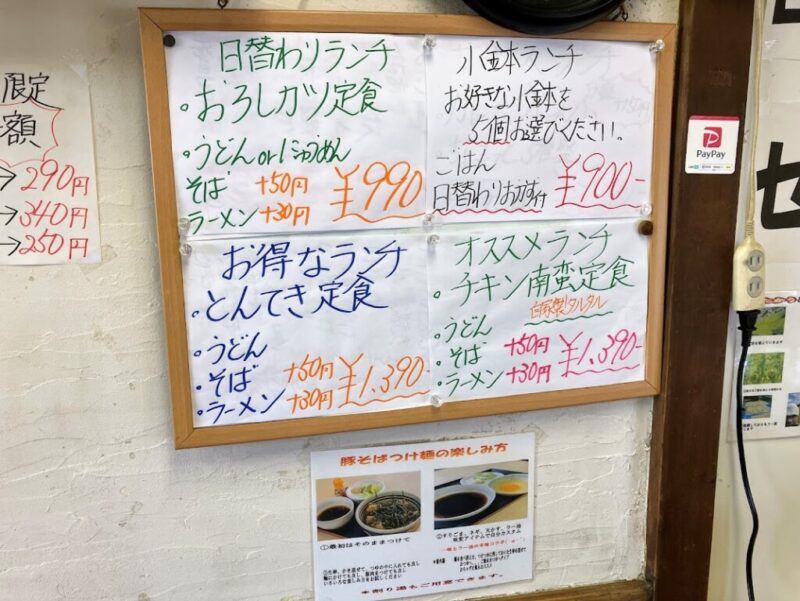 限定
額
→290円
→340円
→250円
日替わりランチ
・おろしカツ定食
・うどんorにゅうめん
そば +50円
ラーメン +30円
¥990
小鉢本ランチ
お好きな小鉢本を
5個お選びください。
ごはん
日替わりおかず付
¥900-
お得なランチ
・とんてき定食
・うどん
・そば +50円
・ラーメン +30円
¥1.390-
オススメランチ
・チキン南蛮定食
自家製タルタル
・うどん
・そば +50円
・ラーメン +30円
¥1.390-
PayPay
豚そばつけ麺の楽しみ方
①最初はそのままつけて
②すりごま、ネギ、天かす、ラー油
味変アイテムで自分カスタム
※割り湯もご用意できます。
せ